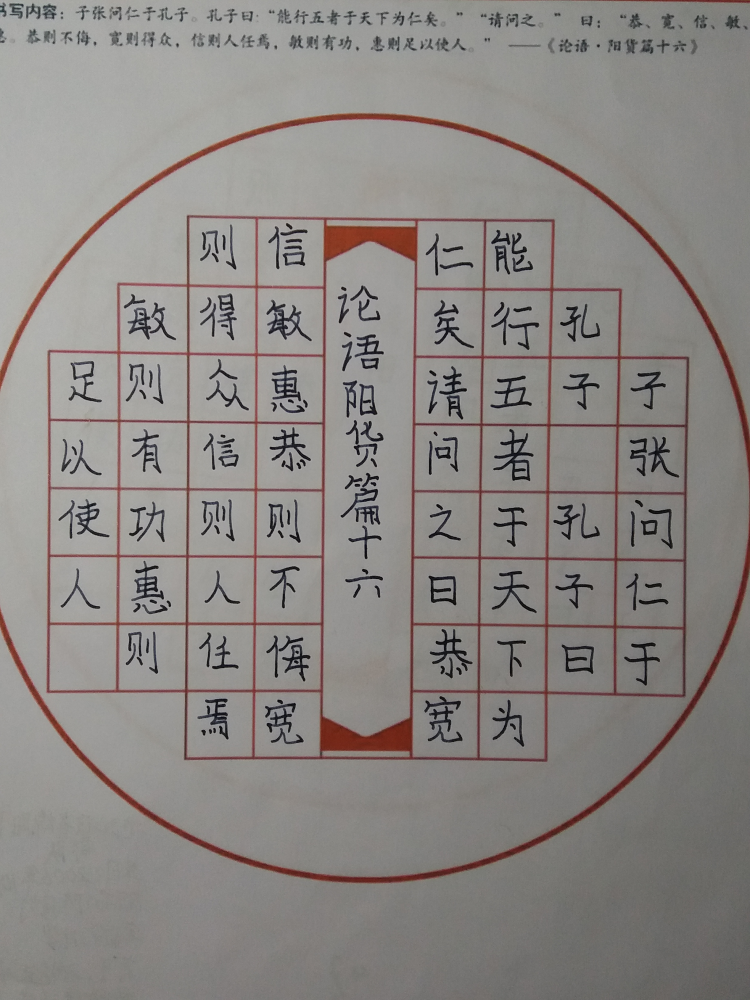 书写内容：子张问仁于孔子。孔子曰：“能行五者于天下为仁矣。”“请问之。” 曰：“恭、宽、信、敏、
惠。恭则不侮，宽则得众，信则人任焉，敏则有功，惠则足以使人。” ——《论语·阳货篇十六》
子张问仁于
孔子 孔子曰
能行五者于天下为
仁矣请问之曰恭宽
论语阳货篇十六
信敏惠恭则不侮宽
则得众信则人任焉
敏则有功惠则
足以使人